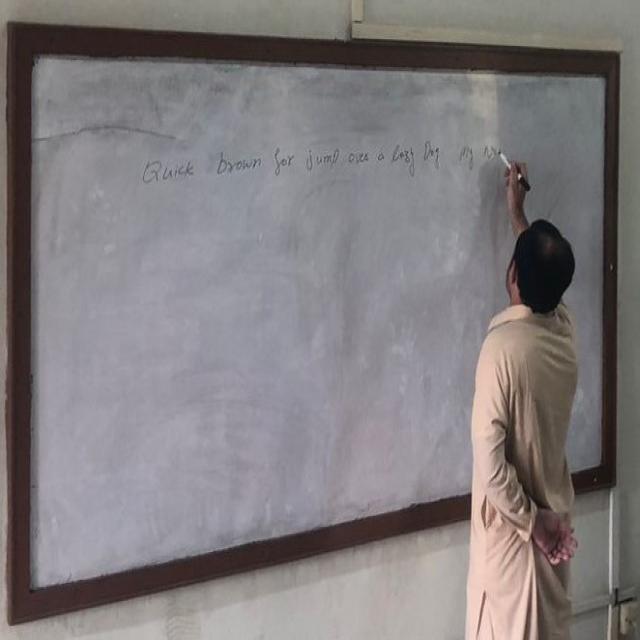 Quick brown fox jump over a lazy Dog My